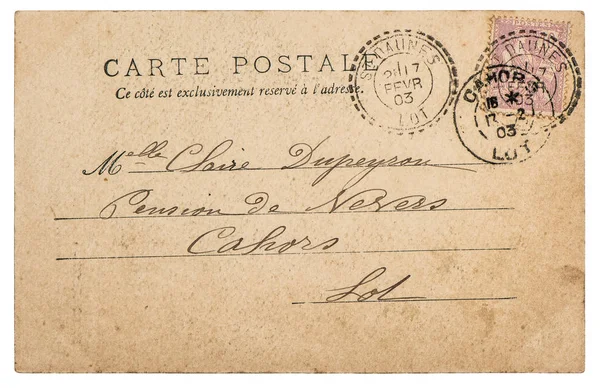 CARTE POSTALE
Ce côté est exclusivement reservé à l'adresse.
St DAUNES
17
FEVR
03
LOT
DAUNES
17
03
CAHORS
16 *
17 2
03
LOT
Melle Claire Dupeyron
Pension de Nevers
Cahors
Lot